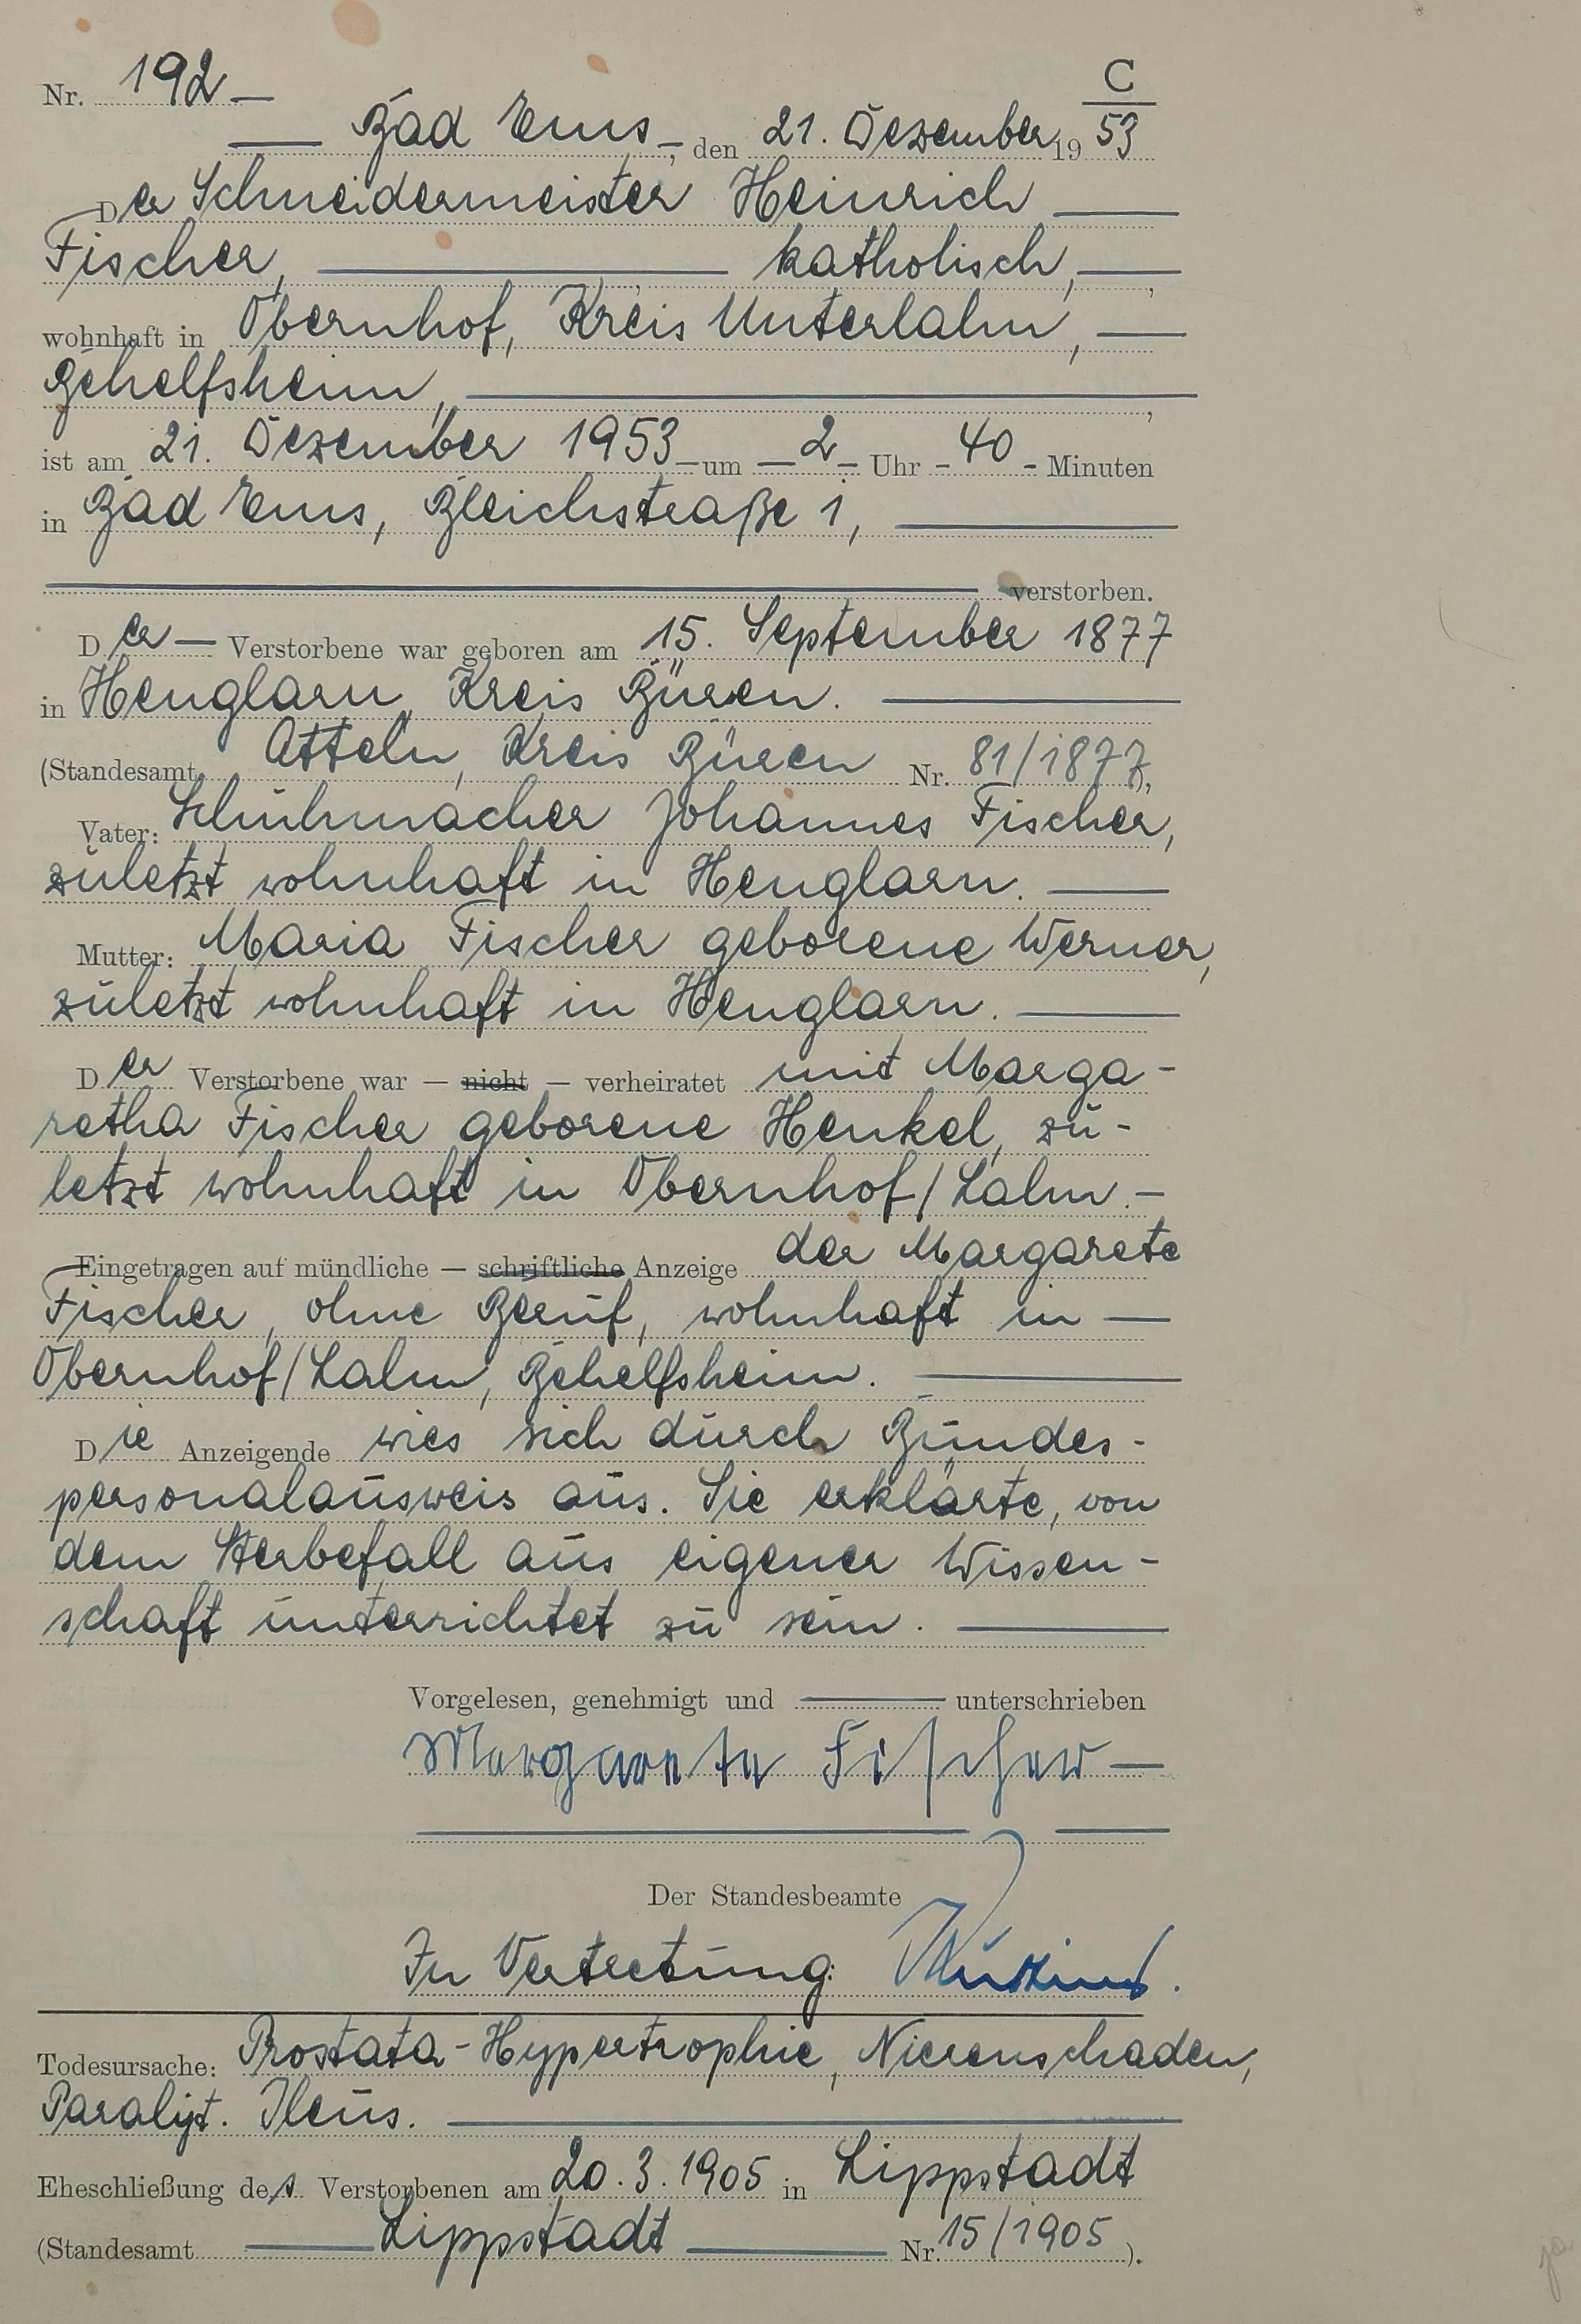 C
Nr. 192 —
— Bad Ems —, den 21. Dezember 19 53
Der Schneidermeister Heinrich —
Fischer, — katholisch, —,
wohnhaft in Obernhof, Kreis Unterlahn, —
Behelfsheim, —,
ist am 21. Dezember 1953 — um — 2 — Uhr - 40 - Minuten
in Bad Ems, Bleichstraße 1, —
— verstorben.
Der — Verstorbene war geboren am 15. September 1877
in Henglarn, Kreis Büren. —
(Standesamt Atteln, Kreis Büren Nr. 81/1877),
Vater: Schuhmacher Johannes Fischer,
zuletzt wohnhaft in Henglarn. —
Mutter: Maria Fischer geborene Werner,
zuletzt wohnhaft in Henglarn. —
Der Verstorbene war — nicht — verheiratet mit Marga-
retha Fischer geborene Henkel, zu-
letzt wohnhaft in Obernhof/Lahn. —
Eingetragen auf mündliche — schriftliche Anzeige der Margarete
Fischer, ohne Beruf, wohnhaft in —
Obernhof/Lahn, Behelfsheim. —
Die Anzeigende wies sich durch Bundes-
personalausweis aus. Sie erklärte, von
dem Sterbefall aus eigener Wissen-
schaft unterrichtet zu sein. —
Vorgelesen, genehmigt und — unterschrieben
Margarete Fischer —
Der Standesbeamte
In Vertretung:
Todesursache: Prostata-Hypertrophie, Nierenschaden,
Paralyt. Ileus. —
Eheschließung des Verstorbenen am 20.3.1905 in Lippstadt
(Standesamt — Lippstadt — Nr. 15/1905).